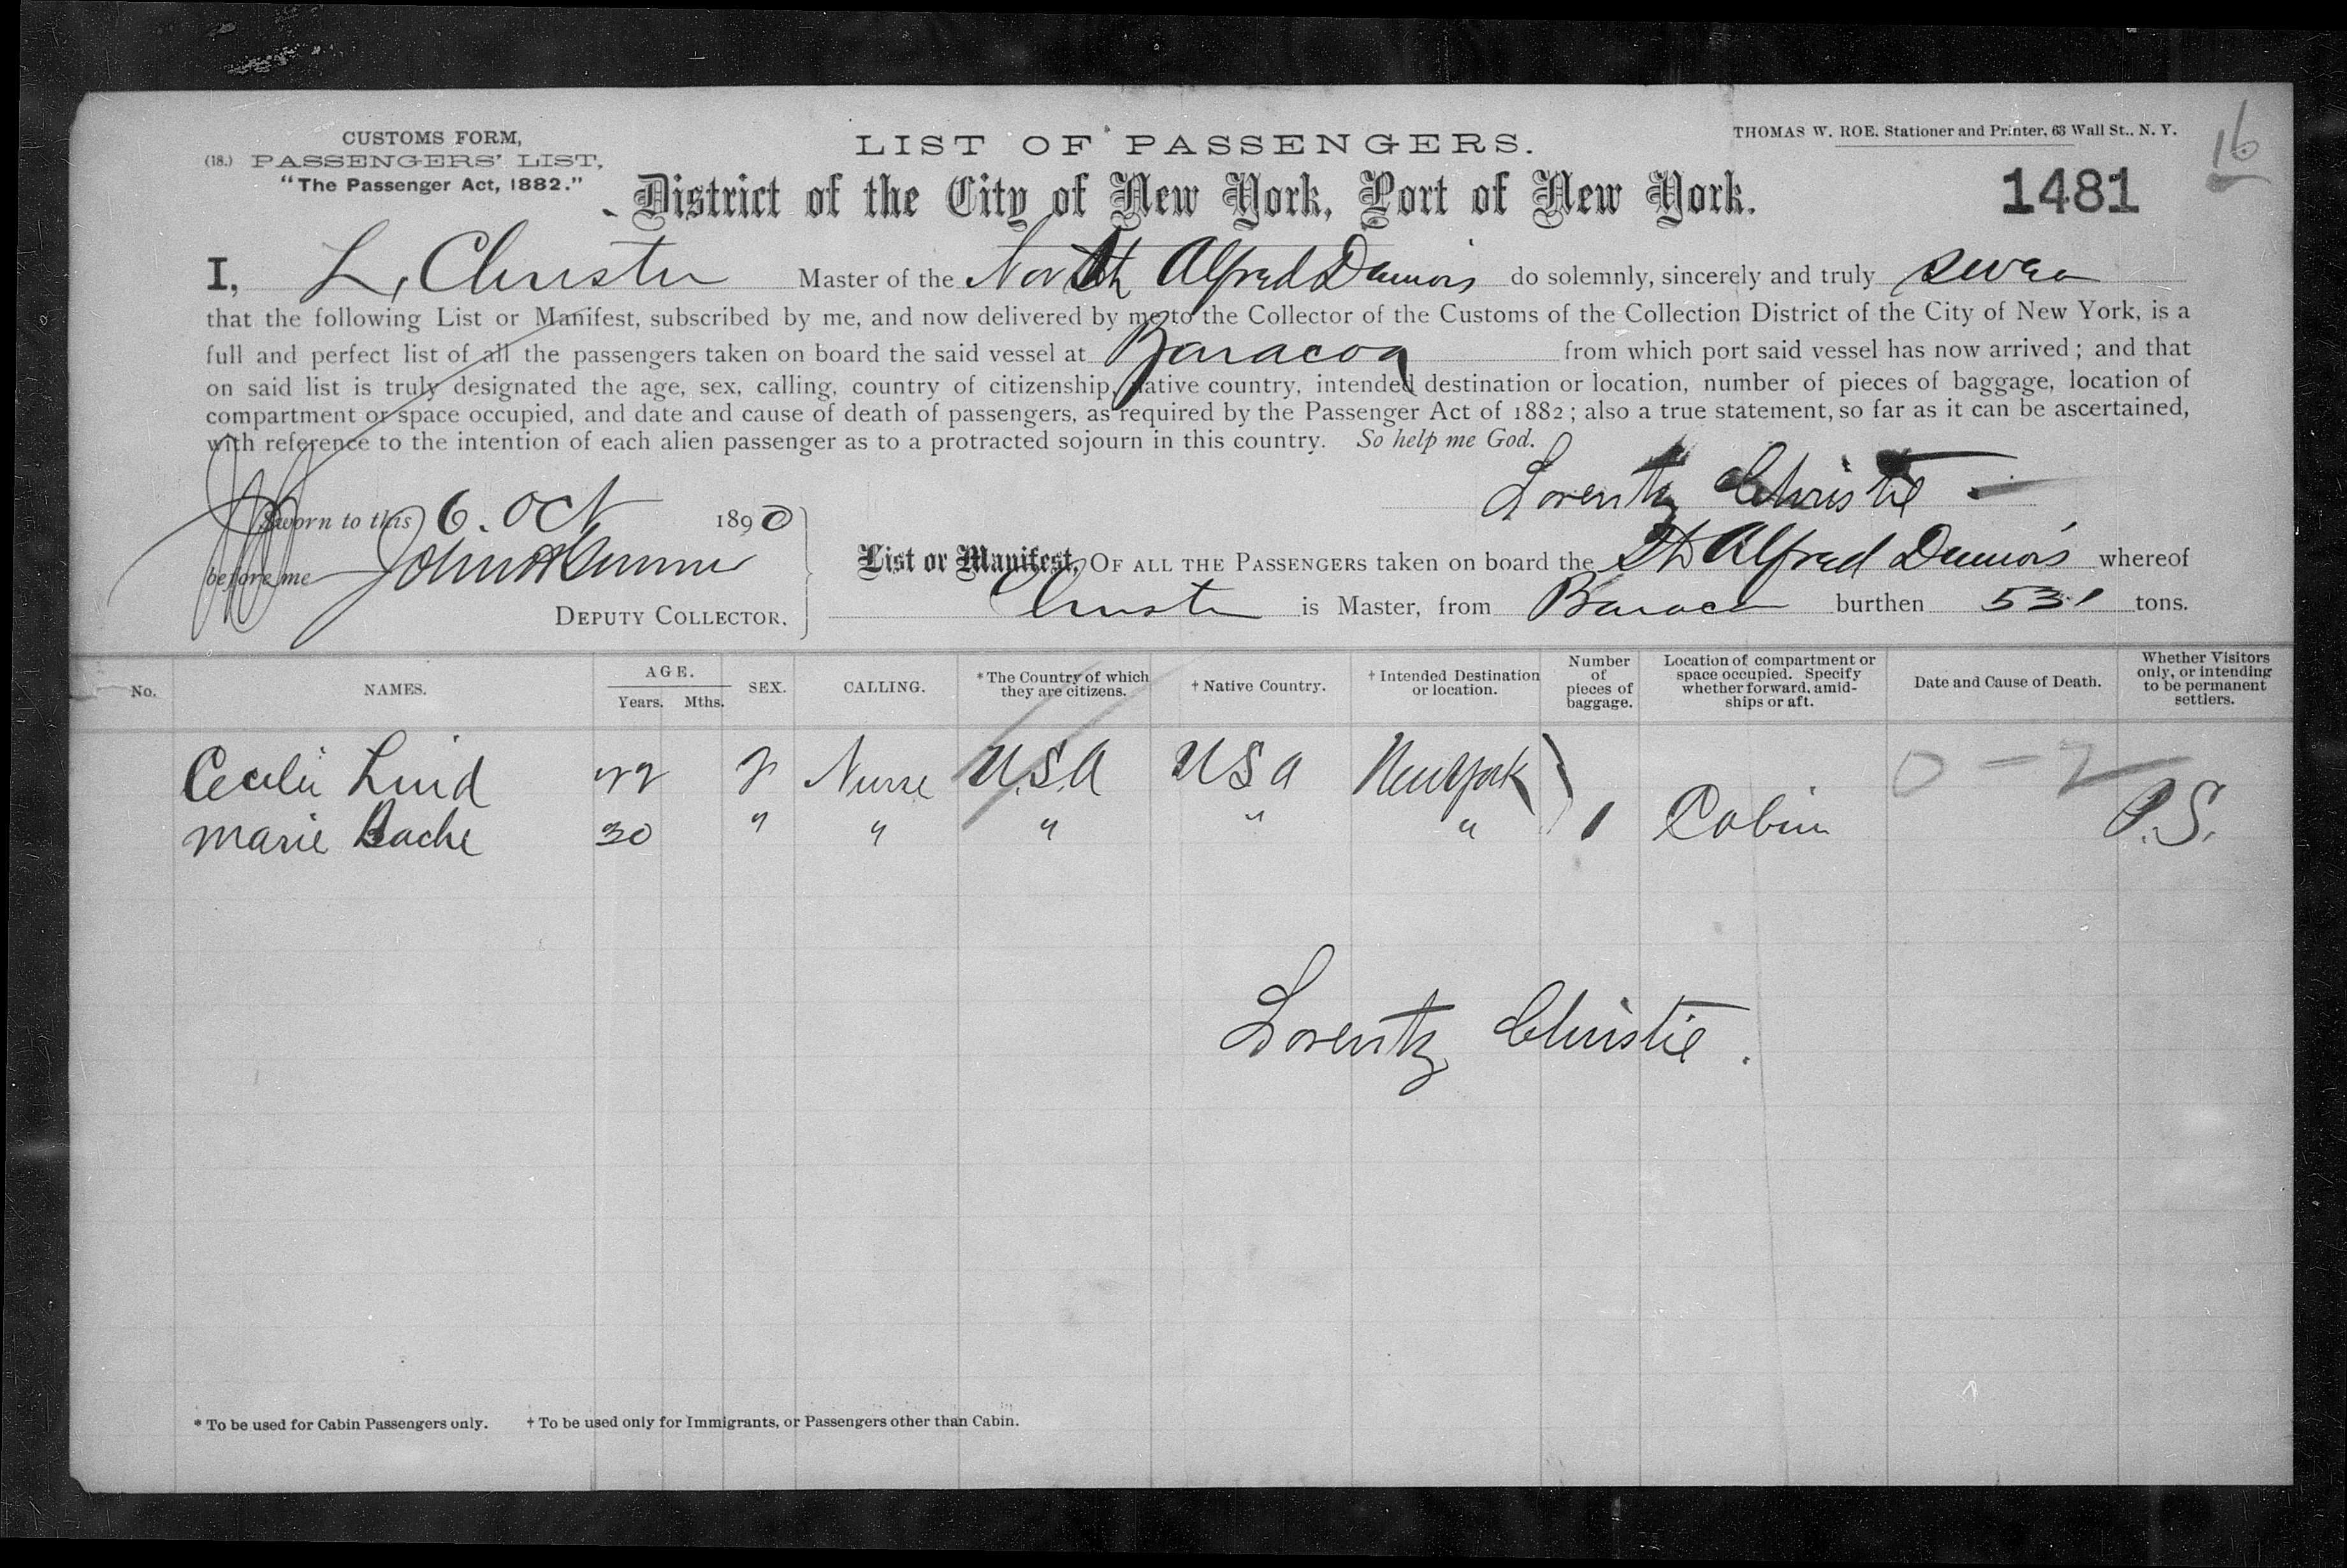 CUSTOMS FORM,
(18.) PASSENGERS' LIST,
"The Passenger Act, 1882."
LIST OF PASSENGERS.
THOMAS W. ROE, Stationer and Printer, 63 Wall St., N. Y.
16
District of the City of New York, Port of New York.
1481
I, L. Christie Master of the Alfred Dumois do solemnly, sincerely and truly swear
that the following List or Manifest, subscribed by me, and now delivered by me to the Collector of the Customs of the Collection District of the City of New York, is a
full and perfect list of all the passengers taken on board the said vessel at Baracoa from which port said vessel has now arrived; and that
on said list is truly designated the age, sex, calling, country of citizenship, native country, intended destination or location, number of pieces of baggage, location of
compartment or space occupied, and date and cause of death of passengers, as required by the Passenger Act of 1882; also a true statement, so far as it can be ascertained,
with reference to the intention of each alien passenger as to a protracted sojourn in this country. So help me God.
Lorentz Christie.
Sworn to this 6. Oct 1890
before me
DEPUTY COLLECTOR.
List or Manifest, OF ALL THE PASSENGERS taken on board the Alfred Dumois whereof
Christie is Master, from Baracoa burthen 531 tons.
No. NAMES. AGE. Years. Mths. SEX. CALLING. *The Country of which they are citizens. † Native Country. † Intended Destination or location. Number of pieces of baggage. Location of compartment or space occupied. Specify whether forward, amidships or aft. Date and Cause of Death. Whether Visitors only, or intending to be permanent settlers.
Cecilie Lind Nurse U.S.A USA New York 0-2
Marie Bache 30 " " " " " 1 Cabin P.S.
Lorentz Christie.
* To be used for Cabin Passengers only. † To be used only for Immigrants, or Passengers other than Cabin.